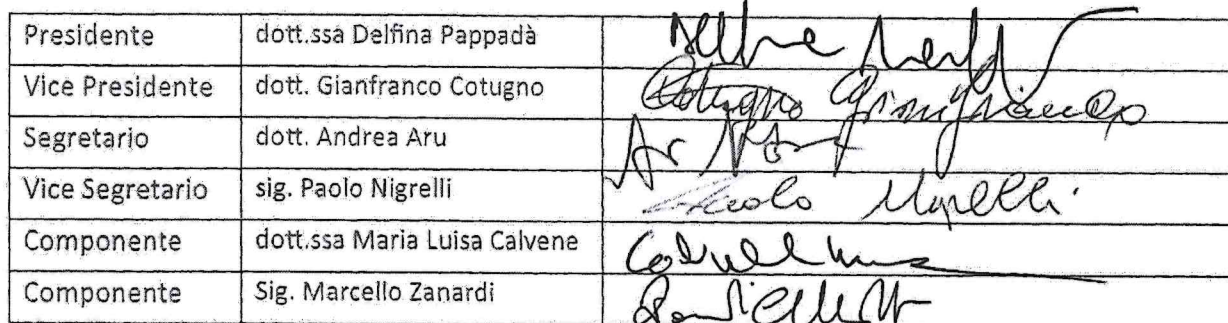 Presidente dott.ssa Delfina Pappadà
Vice Presidente dott. Gianfranco Cotugno Cotugno Gianfranco
Segretario dott. Andrea Aru
Vice Segretario sig. Paolo Nigrelli Paolo Nigrelli
Componente dott.ssa Maria Luisa Calvene
Componente Sig. Marcello Zanardi